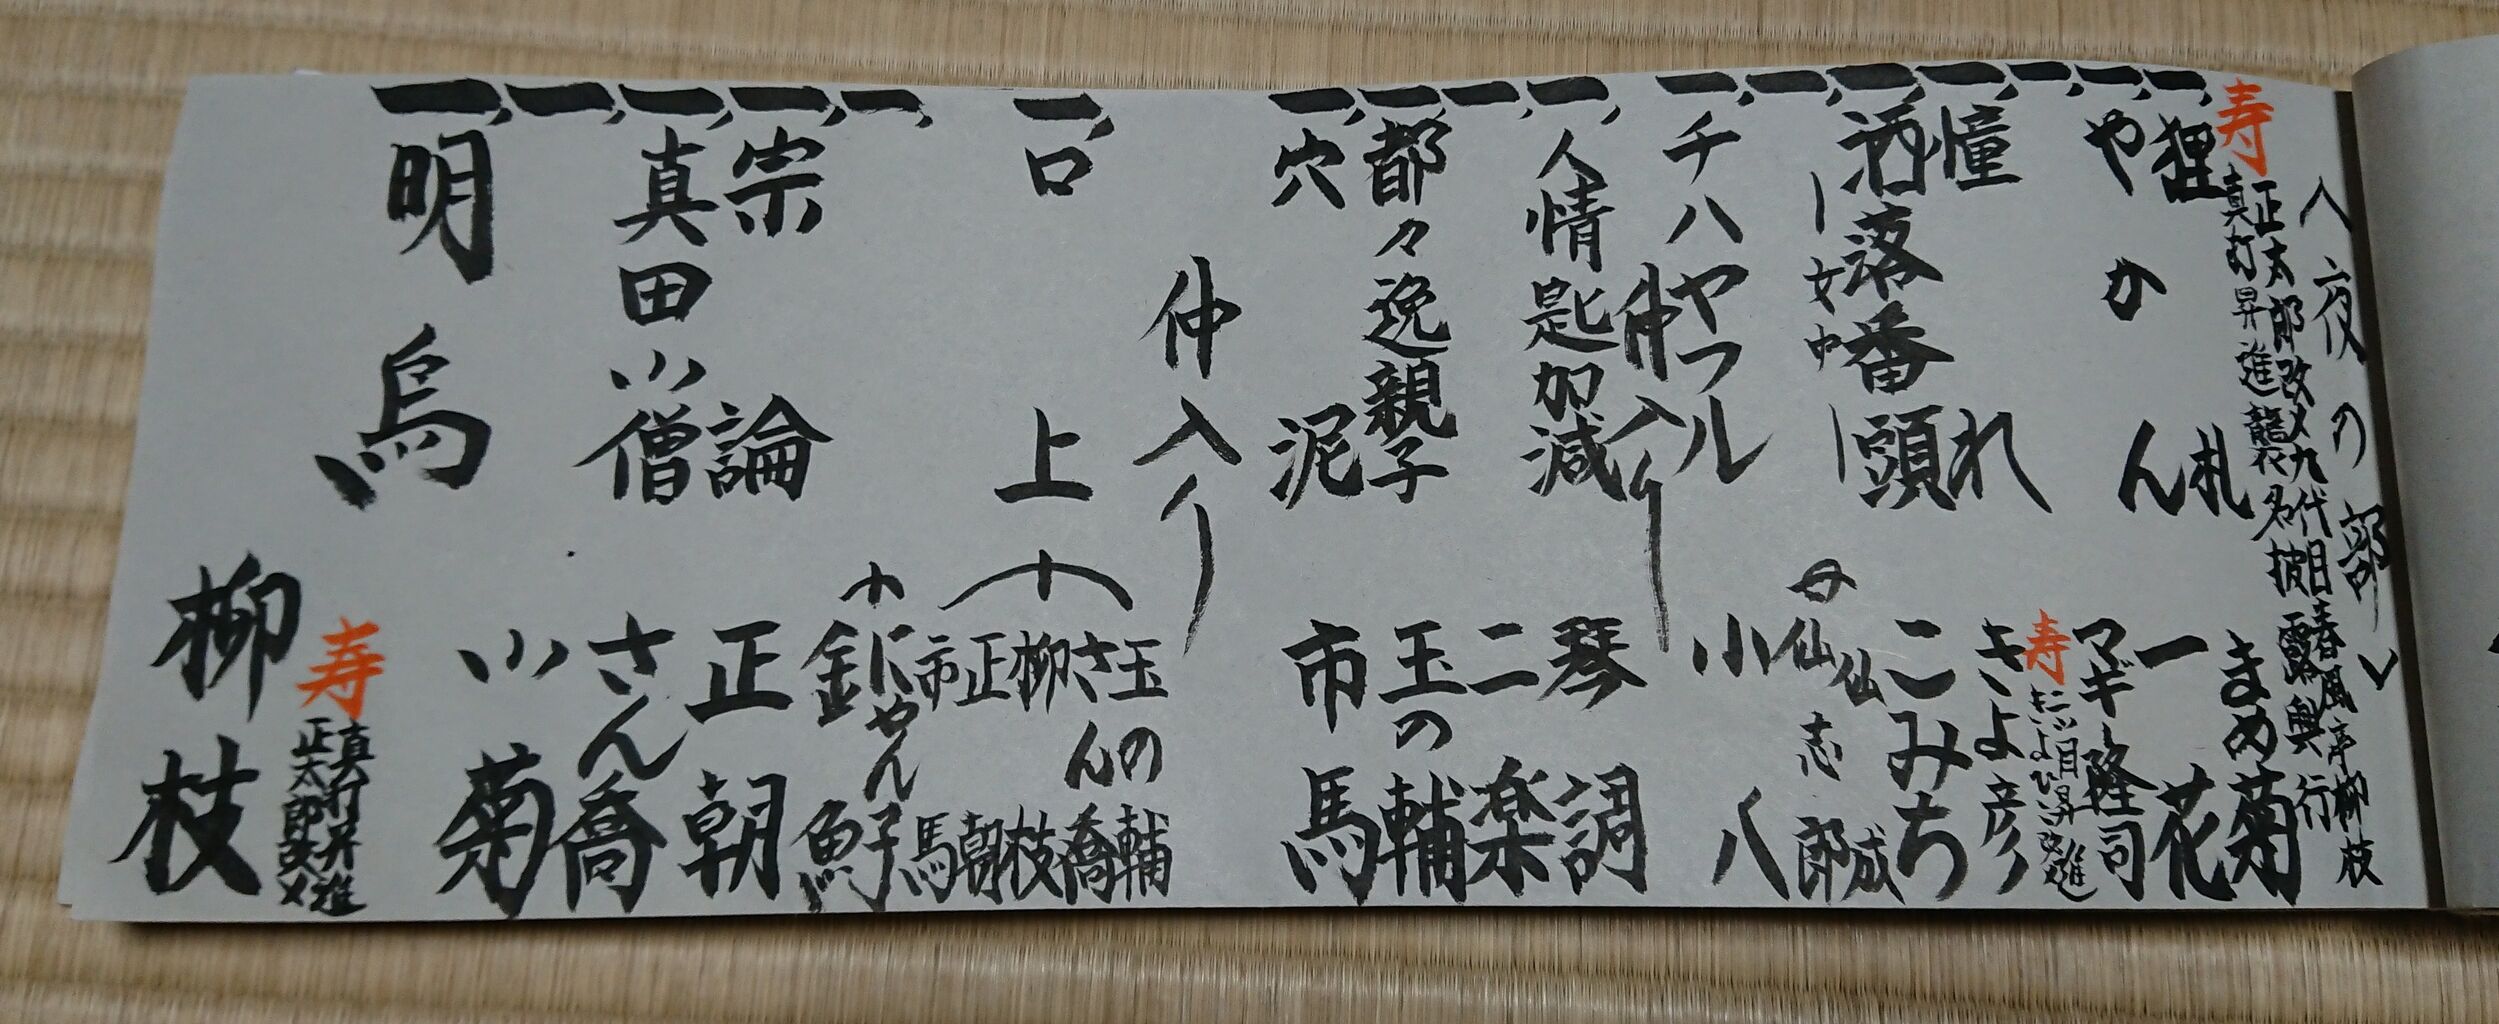 〈夜の部〉
寿 正太郎改メ九代目春風亭柳枝
真打昇進襲名披露興行
一、狸札 まめ菊
一、やかん 一花
一、 マギー隆司
寿 二ツ目昇進
きよひこ改メ
一、憧れ きよ彦
一、洒落番頭 こみち
一、―女中― 仙成
仙志郎
一、チハヤフル 小八
仲入り
一、人情匙加減 琴調
一、 二楽
一、都々逸親子 玉の輔
一、穴泥 市馬
仲入り
一、口上 玉の輔
さん喬
柳枝
正朝
市馬
一、 にゃん子
金魚
一、宗論 正朝
一、真田小僧 さん喬
一、 小菊
一、明烏
寿 真打昇進
正太郎改メ
柳枝